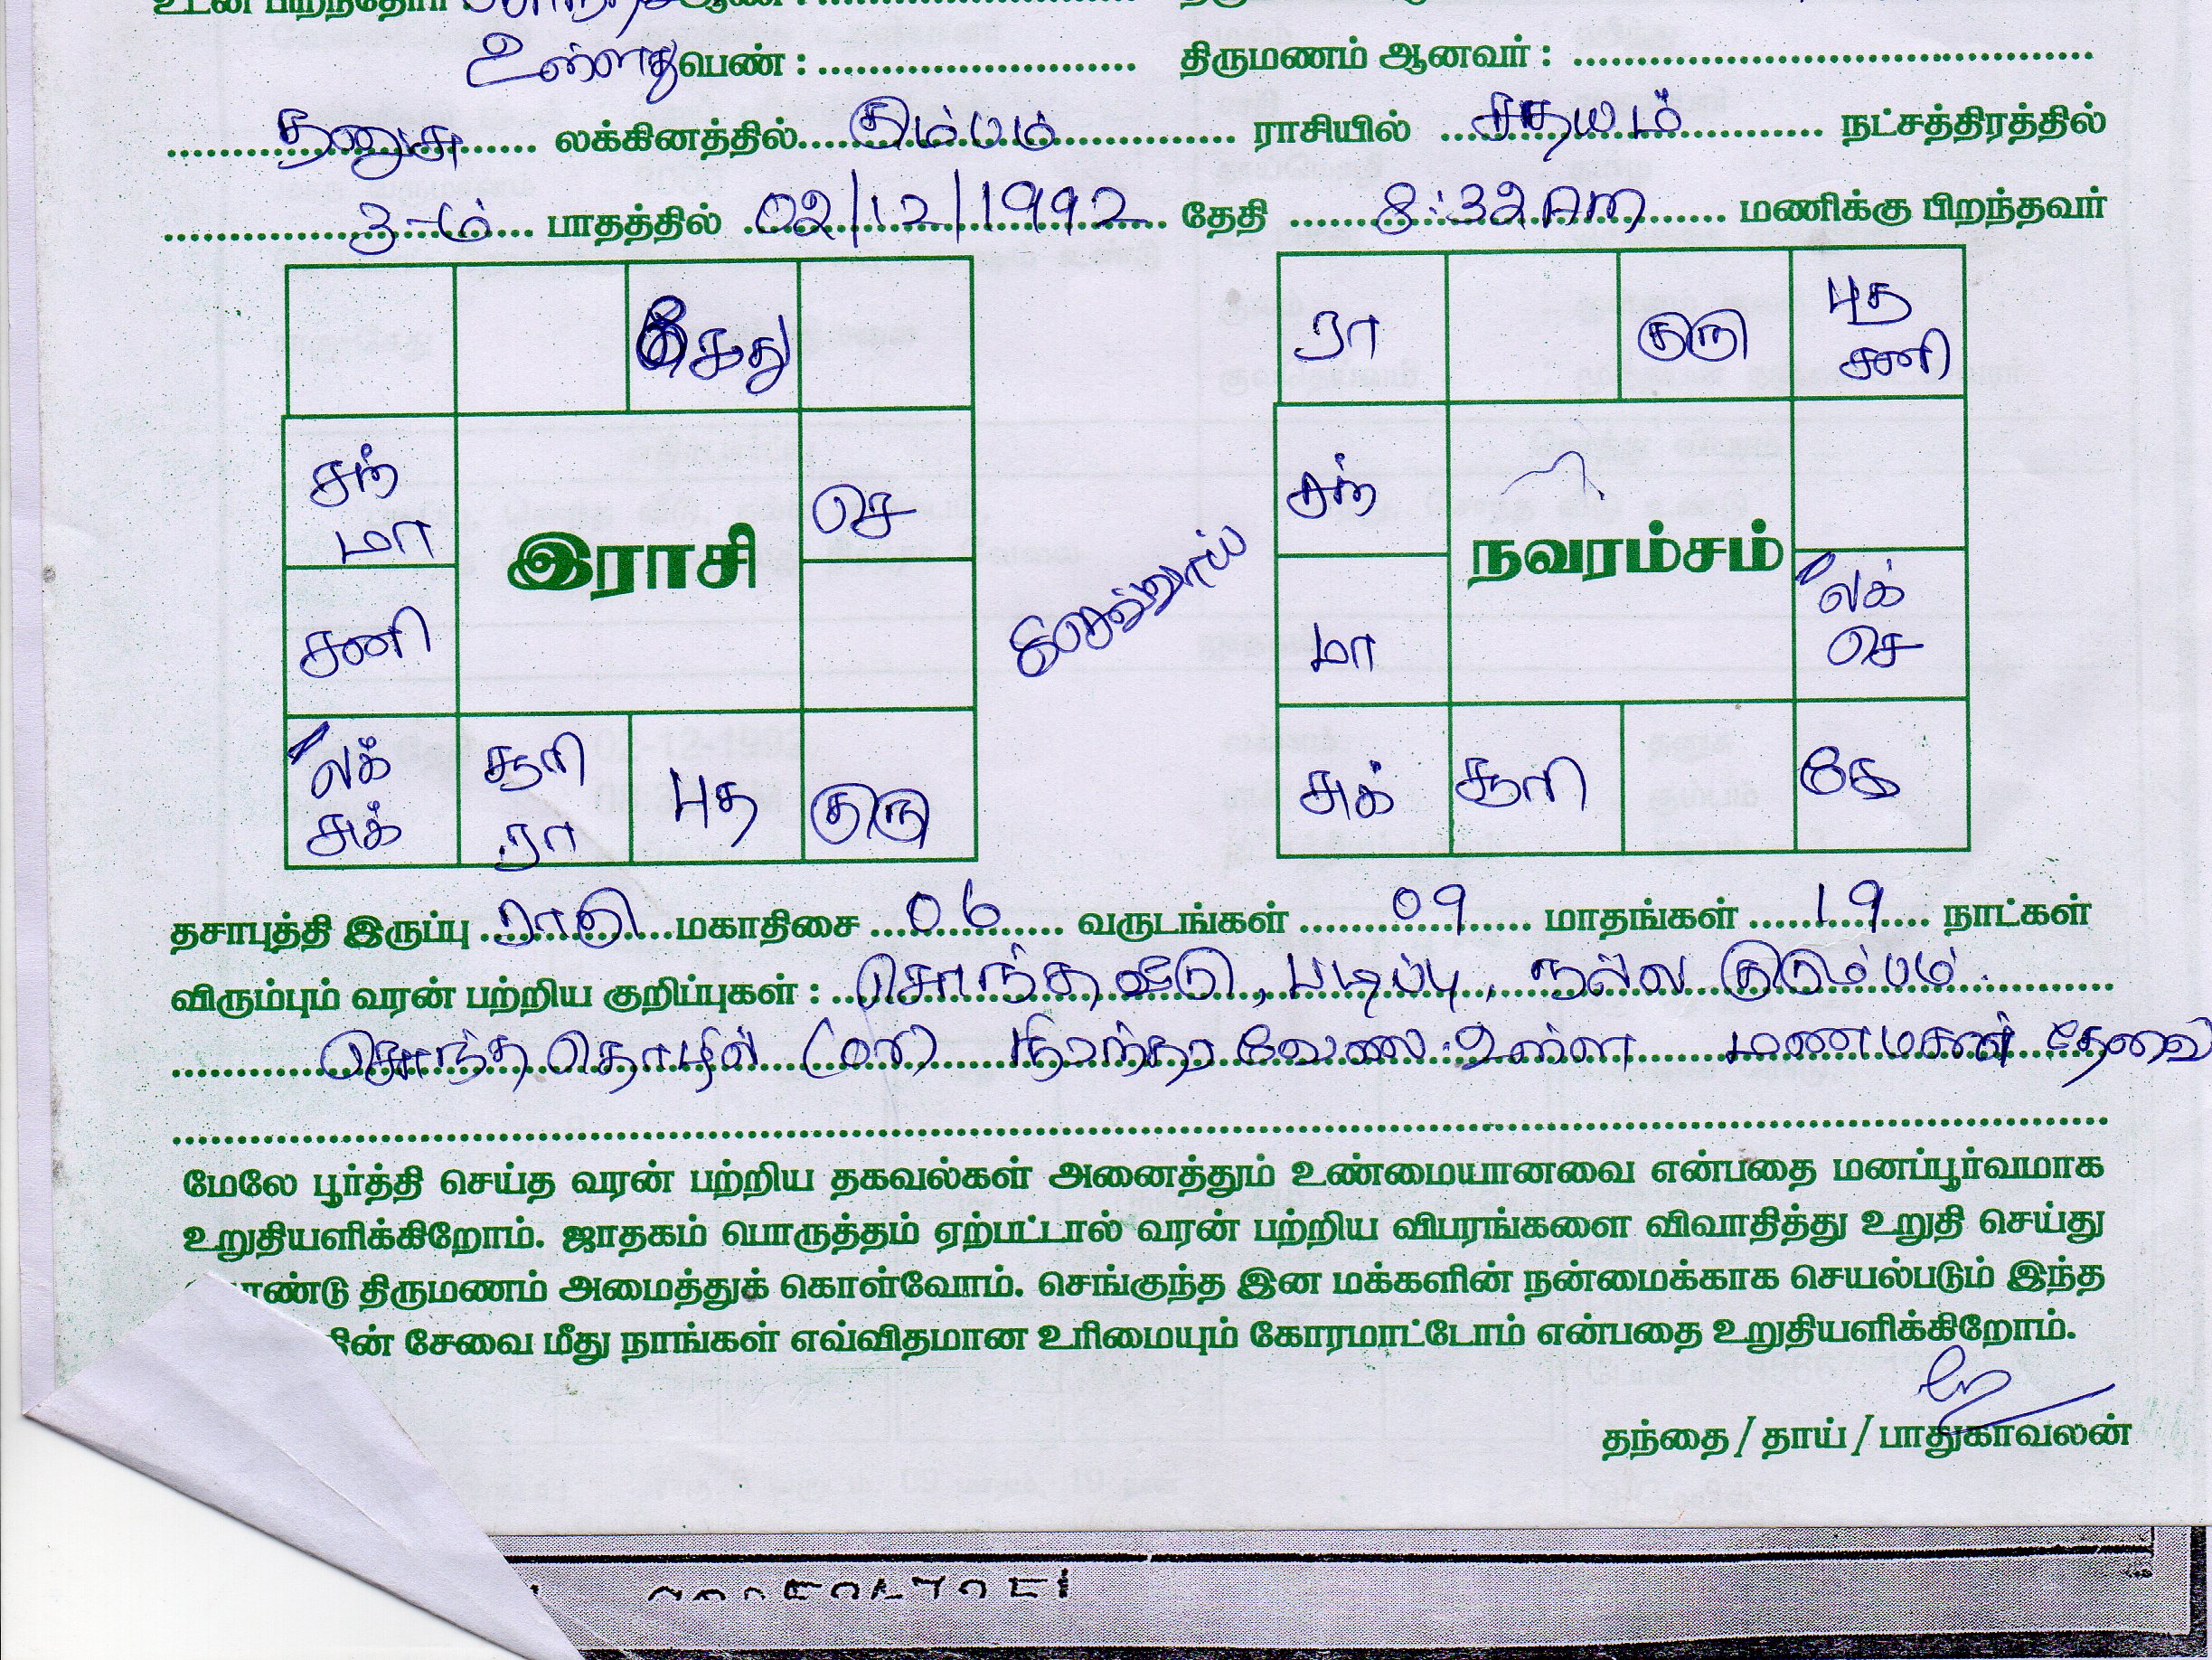 உடன் பிறந்தோர் : ஆண் :
உள்ளது பெண் : திருமணம் ஆனவர் :
தனுசு லக்கினத்தில் கும்பம் ராசியில் சதயம் நட்சத்திரத்தில்
3-ம் பாதத்தில் 02/12/1992 தேதி 8:32 Am மணிக்கு பிறந்தவர்
கேது
சந்
மா
செ
இராசி
சனி
லக்
சுக்
சூரி
ரா
புத
குரு
செவ்வாய்
ரா
குரு
புத
சனி
சந்
நவரம்சம்
மா
லக்
செ
சுக்
சூரி
கே
தசாபுத்தி இருப்பு ராகு மகாதிசை 06 வருடங்கள் 09 மாதங்கள் 19 நாட்கள்
விரும்பும் வரன் பற்றிய குறிப்புகள் : சொந்த வீடு, படிப்பு, நல்ல குடும்பம்.
சொந்த தொழில் (or) நிரந்தர வேலை உள்ள மணமகன் தேவை
மேலே பூர்த்தி செய்த வரன் பற்றிய தகவல்கள் அனைத்தும் உண்மையானவை என்பதை மனப்பூர்வமாக
உறுதியளிக்கிறோம். ஜாதகம் பொருத்தம் ஏற்பட்டால் வரன் பற்றிய விபரங்களை விவாதித்து உறுதி செய்து
ாண்டு திருமணம் அமைத்துக் கொள்வோம். செங்குந்த இன மக்களின் நன்மைக்காக செயல்படும் இந்த
ின் சேவை மீது நாங்கள் எவ்விதமான உரிமையும் கோரமாட்டோம் என்பதை உறுதியளிக்கிறோம்.
தந்தை / தாய் / பாதுகாவலன்